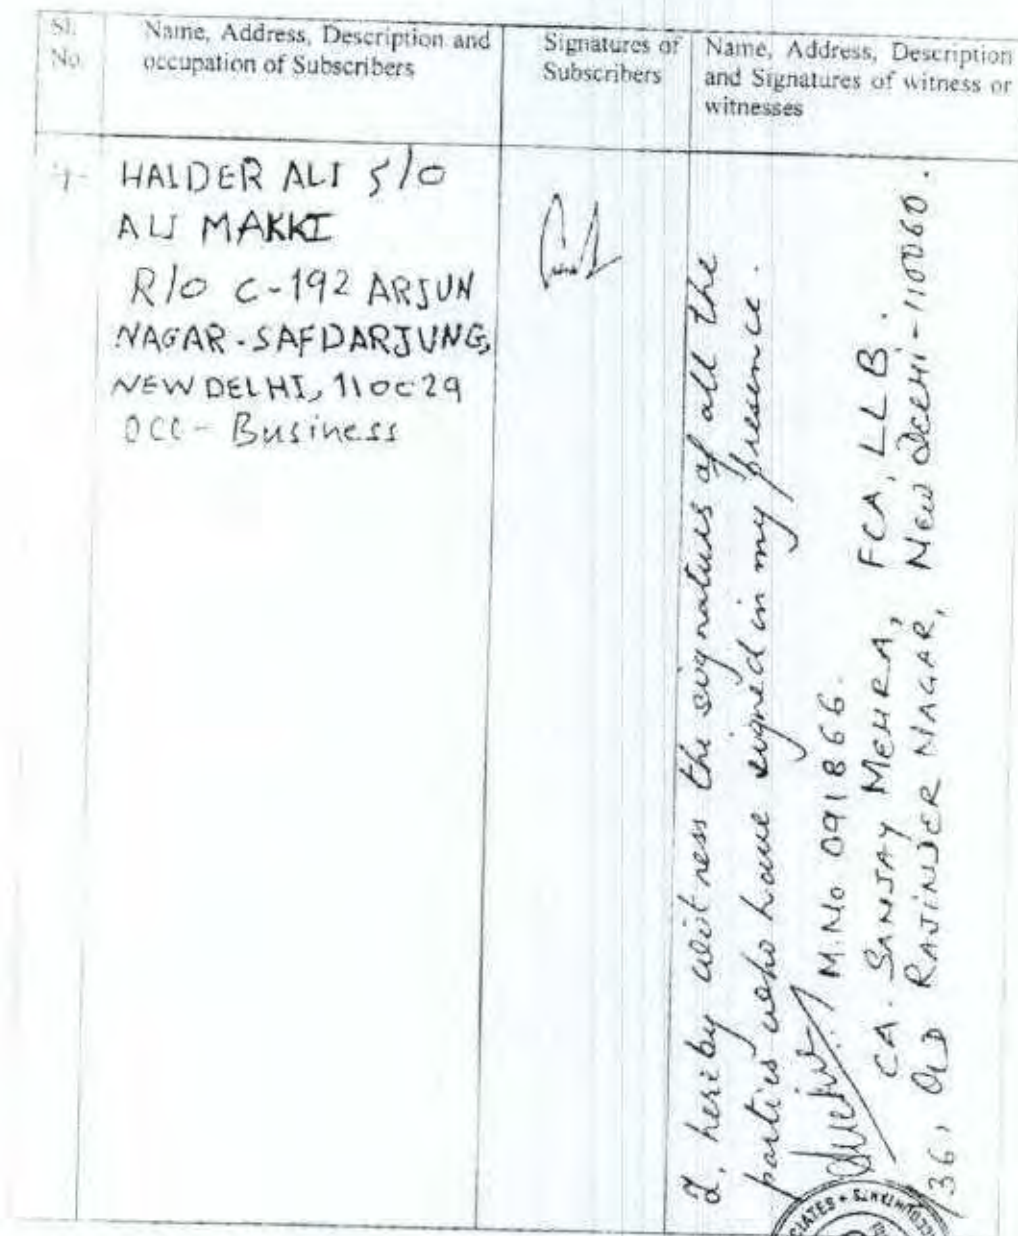 Sl.
No.
Name, Address, Description and
occupation of Subscribers
Signatures of
Subscribers
Name, Address, Description
and Signatures of witness or
witnesses
4-
HAIDER ALI S/O
ALI MAKKI
R/O C-192 ARJUN
NAGAR-SAFDARJUNG,
NEW DELHI, 110029
OCC- Business
I, hereby witness the signatures of all the
parties who have signed in my presence.
M.No. 091866.
CA. SANJAY MEHRA, FCA, LLB.
36, OLD RAJINDER NAGAR, New Delhi-110060.